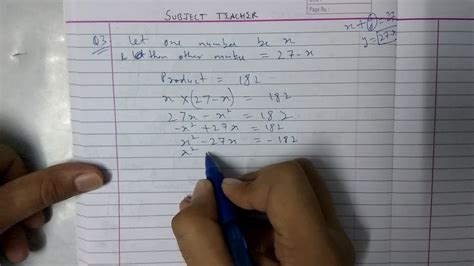 SUBJECT TEACHER
Page No.:
x + y = 27
y = 27-x
Q3 Let one number be x
& then other number = 27-x
Product = 182
x × (27-x) = 182
27x - x² = 182
-x² + 27x = 182
x² - 27x = -182
x²